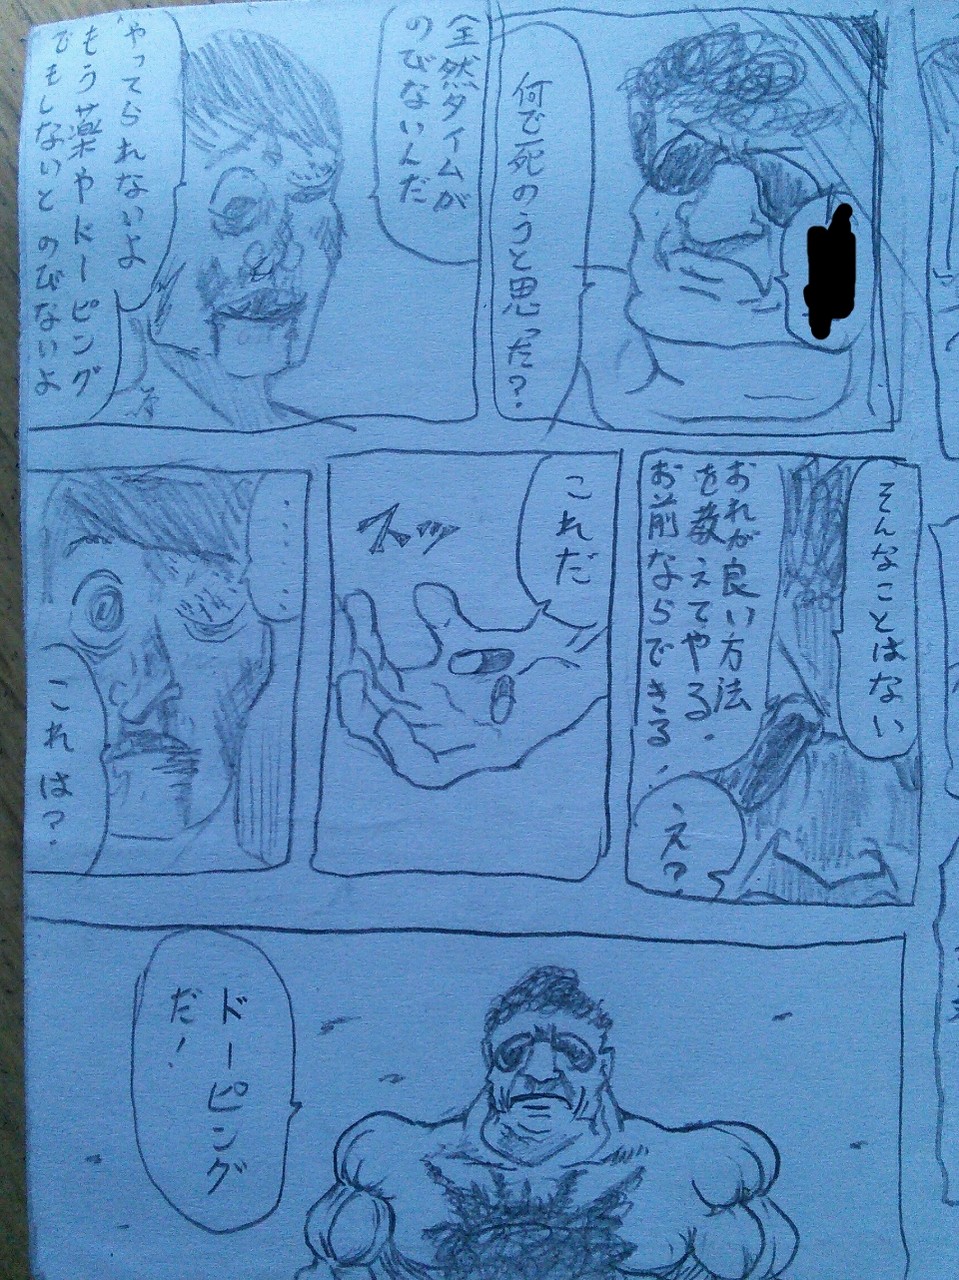 何で死のうと思った?
全然タイムが
のびないんだ
やってられないよ
もう薬やドーピング
でもしないとのびないよ
そんなことはない
おれが良い方法
を教えてやる.
お前ならできる!
え?
これだ
スッ
……
これは?
ドーピング
だ!